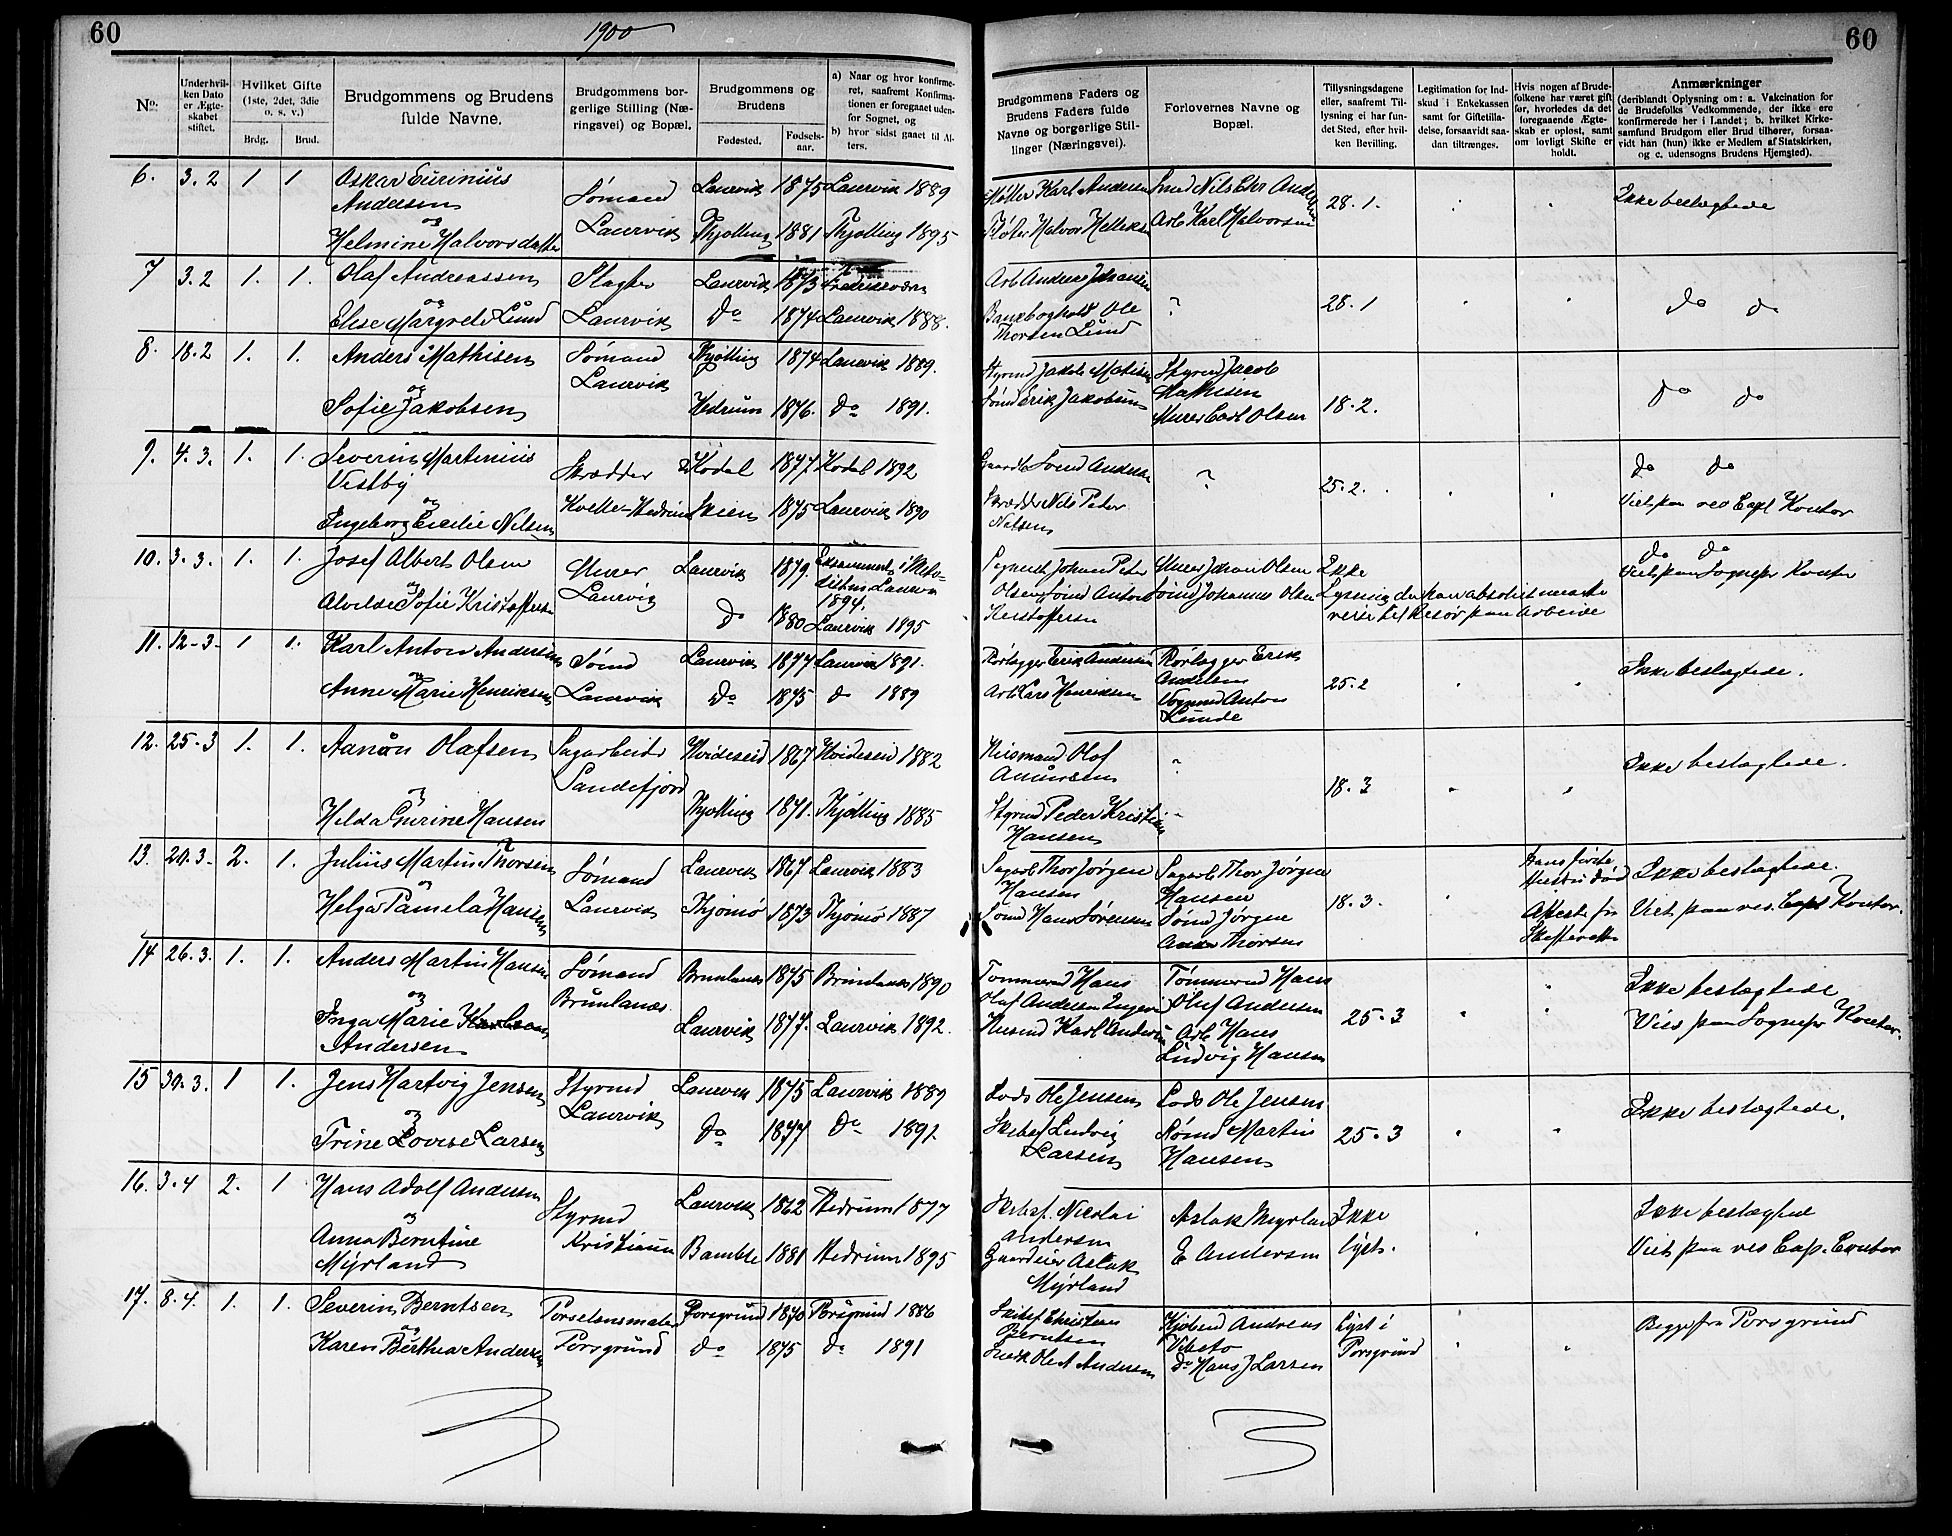 60
1900
60
No.
Underhvilken Dato er Ægteskabet stiftet.
Hvilket Gifte (1ste, 2det, 3die o. s. v.)
Brdg.
Brud.
Brudgommens og Brudens fulde Navne.
Brudgommens borgerlige Stilling (Næringsvei) og Bopæl.
Brudgommens og Brudens
Fødested.
Fødselsaar.
a) Naar og hvor konfirmeret, saafremt Konfirmationen er foregaaet udenfor Sognet, og
b) hvor sidst gaaet til Alters.
Brudgommens Faders og Brudens Faders fulde Navne og borgerlige Stillinger (Næringsvei).
Forlovernes Navne og Bopæl.
Tillysningsdagene eller, saafremt Tillysning ei har fundet Sted, efter hvilken Bevilling.
Legitimation for Indskud i Enkekassen samt for Giftetilladelse, forsaavidt saadan tiltrænges.
Hvis nogen af Brudefolkene har været gift før, hvorledes da det foregaaende Ægteskab er opløst, samt om lovligt Skifte er holdt.
Anmærkninger
(deriblandt Oplysning om: a. Vakcination for de Brudefolks Vedkommende, der ikke ere konfirmerede her i Landet; b. hvilket Kirkesamfund Brudgom eller Brud tilhører, forsaavidt han (hun) ikke er Medlem af Statskirken, og c. udensogns Brudens Hjemsted).
6. 3.2 1 1 Oskar Eurinius Andersen
og
Helmine Halvorsdatter
Sømand Laurvik
Laurvik 1875 Laurvik 1889
Thjølling 1881 Thjølling 1895
Møller Karl Andersen
Halvor
Arb Karl Halvorsen
28.1.
Ikke beslægtede
7 3.2 1. 1. Olaf Andreassen
og
Elise Margrete Lund
Slagter Laurvik
Laurvik 1873 Fredriksværn
Do 1874 Laurvik 1888.
Arb Andreas Johansen
Ole Thorsen Lund
?
28.1
do do
8. 18.2 1. 1. Anders Mathisen
og
Sofie Jakobsen
Sømand Laurvik
Thjølling 1874 Laurvik 1889.
Hedrum 1876. do 1891.
Styrmd Jakob Matisen
Sømd Erik Jakobsen
Styrmd Jacob Mathisen
Murer Carl Olsen
18.2.
do do
9. 4.3. 1. 1. Severin Martinius Vestby
og
Ingeborg Cecilie Nilsen
Skrædder
Kvelle-Hedrum
Kodal 1877 Kodal 1892
Skien 1875 Laurvik 1890
Svend Andersen
Skrædder Nils Peter Nilsen
?
25.2.
do do
Viet paa res Capl Kontor
10. 3.3. 1. 1. Josef Albert Olsen
og
Alvilde Sofie Kristoffersen
Murer Laurvig
Laurvik 1879. 1894.
Do 1880 Laurvik 1895
Johan Peter Olsen
Sømd Anton Kristoffersen
Murer Johan Olsen
Sømd Johannes Olsen
Ikke Lysning da han absolut maatte reise til paa Arbeide
do do
Viet paa Sognepr Kontor
11. 12-3- 1 1. Karl Anton Andersen
og
Anne Marie Henriksen
Sømd Laurvik
Laurvik 1877 Laurvik 1891.
Do 1875 do 1889
Rørlægger Erik Andersen
Arb Lars Henriksen
Rørlægger Erik Andersen
Vognmd Anton Lunde
25.2
Ikke beslægtede.
12. 25-3 1. 1. Aanon Olafsen
og
Hilda Gurine Hansen
Sagarbeider Sandefjord
Hvideseid 1867 Hvideseid 1882
Thjølling 1871. Thjølling 1885
Husmand Olof
Styrmd Peder Kristian Hansen
?
18.3
Ikke beslægtede.
13. 20.3- 2. 1. Julius Martin Thorsen
og
Helga Pamela Hansen
Sømand Laurvik
Laurvik 1867 Laurvik 1883
Thjømø 1873 Thjømø 1887
Sagarb. Thor Jørgen Hansen
Sømd Hans Sørensen
Sagarb Thor Jørgen Hansen
Sømd Jørgen Thorsen
18.3.
Hans første Hustru død
Attest fra Skifteretten
Ikke beslægtede.
Viet paa res. Capl Kontor.
14 26.3. 1. 1. Anders Martin Hansen
og
Inga Marie Andersen
Sømand Brunlanæs
Brunlanæs 1875 Brunlanæs 1890
Laurvik 1877. Laurvik 1892.
Tømmermd Hans Oluf Andersen
Husmd Karl Andersen
Tømmermd Hans Oluf Andersen
Arb Hans Ludvig Hansen
25-3
Ikke beslægtede
Viet paa Sognepr Kontor.
15 30.3. 1 1. Jens Hartvig Jensen
og
Trine Lovise Larsen
Styrmd Laurvik
Laurvik 1875 Laurvik 1889
Do 1877 Do 1892
Lods Ole Jensen
Skibsf Ludvig Larsen
Lods Ole Jensen
Sømd Martin Hansen
25-3
Ikke beslægtede.
16. 3.4 2. 1 Hans Adolf Andersen
og
Anna Berntine Myrland
Styrmd
Laurvik 1862 Hedrum 1877
Bamble 1881 Hedrum 1895
Skibsf. Nicolai Andersen
Gaardeier Aslak Myrland
Aslak Myrland
E Andersen
Ikke lyst.
Ikke beslægtede
Viet paa res Cap. Contor
17. 8.4. 1. 1. Severin Berntsen
og
Karen Berthea Andersen
Porselensmaler Porsgrund
Porsgrund 1870 Porsgrund 1886
do 1875 do 1891
Skibsf Christian Berntsen
Ole A Andersen
Kjøbmd Andreas
do Hans J Larsen
Lyst i Porsgrund
Begge fra Porsgrund